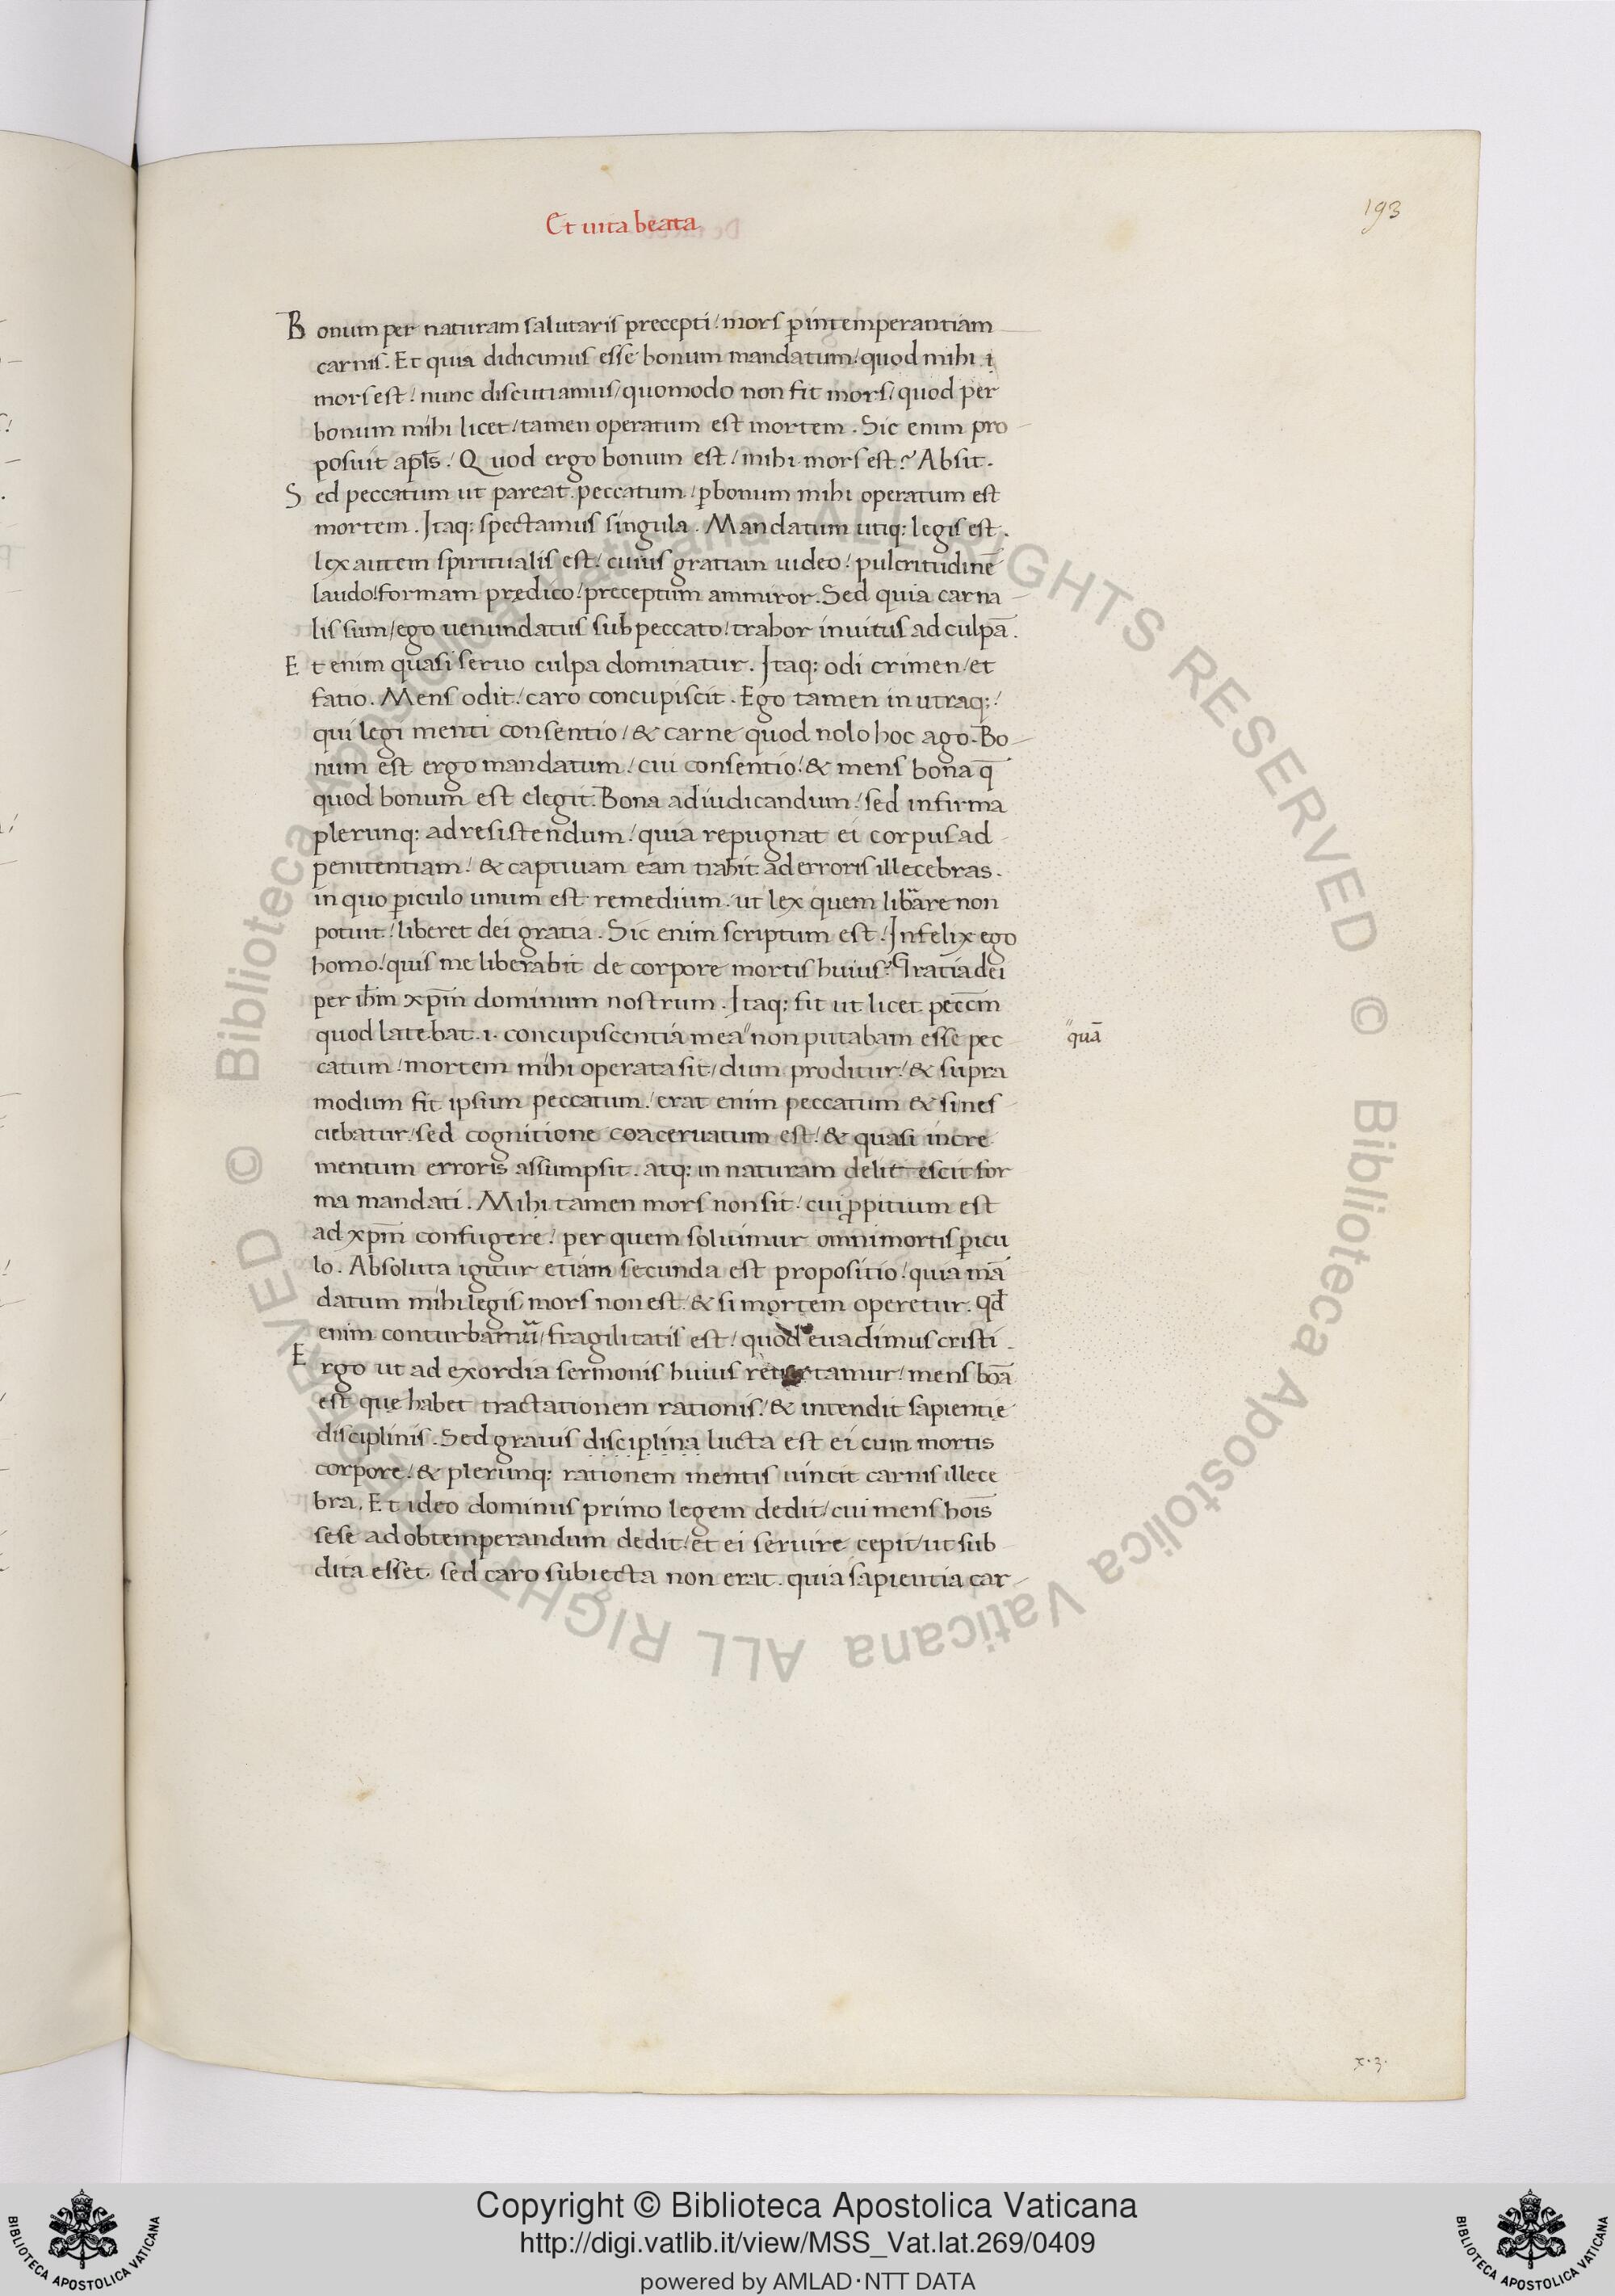 Et uita beata
193
Bonum per naturam salutaris precepti / mors p̱ intemperantiam
carnis. Et quia didicimus esse bonum mandatum / quod mihi i
mors est / nunc discutiamus / quomodo non fit mors / quod per
bonum mihi licet / tamen operatum est mortem. Sic enim pro
posuit apl̄s / Quod ergo bonum est / mihi mors est? Absit.
Sed peccatum ut pareat peccatum / p̱ bonum mihi operatum est
mortem. Itaq: spectamus singula. Mandatum utiq: legis est.
lex autem spiritualis est / cuius gratiam uideo / pulcritudinē
laudo / formam predico / preceptum ammiror. Sed quia carna
lis sum / ego uenundatus sub peccato / trahor inuitus ad culpā.
Et enim quasi seruo culpa dominatur. Itaq: odi crimen / et
fatio. Mens odit / caro concupiscit. Ego tamen in utraq: /
qui legi menti consentio / & carne quod nolo hoc ago. Bo
num est ergo mandatum / cui consentio / & mens bona q̄
quod bonum est elegit. Bona ad iudicandum / sed infirma
plerunq: ad resistendum / quia repugnat ei corpus ad
penitentiam / & captiuam eam trahit ad erroris illecebras.
in quo p̱iculo unum est remedium. ut lex quem libāre non
potuit / liberet dei gratia. Sic enim scriptum est / Infelix ego
homo / quis me liberabit de corpore mortis huius? Gratia dei
per ih̄m xp̄m dominum nostrum. Itaq: fit ut licet pecc̄m
quod latebat .i. concupiscentia mea " non putabam esse pec
"quā
catum / mortem mihi operata sit / dum proditur / & supra
modum fit ipsum peccatum / erat enim peccatum & si nes
ciebatur / sed cognitione coaceruatum est / & quasi incre
mentum erroris assumpsit. atq: in naturam delitescit for
ma mandati. Mihi tamen mors non sit / cui p̱pitium est
ad xp̄m confugere / per quem soluimur omni mortis p̱icu
lo. Absoluta igitur etiam secunda est propositio / quia mā
datum mihi legis mors non est / & si mortem operetur. qd̄
enim conturbamur / fragilitatis est / quod euadimus cristi.
Ergo ut ad exordia sermonis huius reuertamur / mens bōa
est que habet tractationem rationis / & intendit sapientie
disciplinis. Sed grauis disciplina lucta est ei cum mortis
corpore / & plerunq: rationem mentis uincit carnis illece
bra. Et ideo dominus primo legem dedit / cui mens hoīs
sese ad obtemperandum dedit / et ei seruire cepit / ut sub
dita esset. sed caro subiecta non erat. quia sapientia car
x.3.
© Biblioteca Apostolica Vaticana ALL RIGHTS RESERVED © Biblioteca Apostolica Vaticana ALL RIGHTS RESERVED
Copyright © Biblioteca Apostolica Vaticana
http://digi.vatlib.it/view/MSS_Vat.lat.269/0409
powered by AMLAD·NTT DATA
BIBLIOTECA APOSTOLICA VATICANA
BIBLIOTECA APOSTOLICA VATICANA